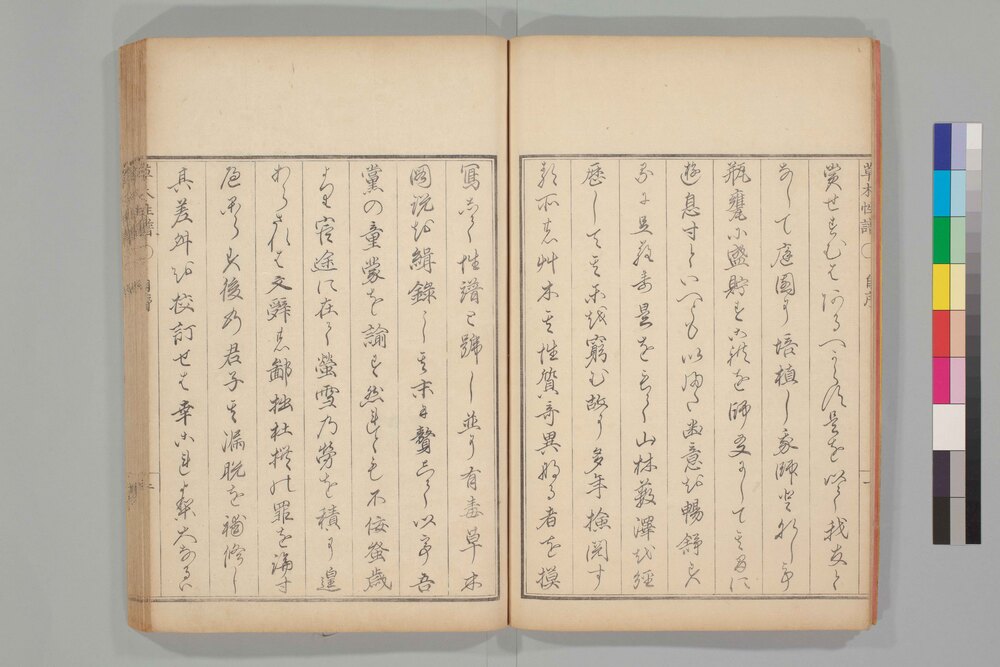 草木性譜 自序
賞せすむはあるへからす是を以て我友と
なして庭園に培植し我師と
瓶甕に盛貯を師友として其間に
遊息すといへとも以幽意を暢舒す
るに足らす是をして山林藪澤を經
歴して其を窮む故に多年撿閲す
る所の艸木其性質奇異なる者を摸
寫して性譜と號し並に有毒草木
圖説を緝錄して其末に贅して以て吾
黨の童蒙を諭す然れとも不佞歳
より官途に在て螢雪乃勞を積に遑
あらされは文辭の鄙拙杜撰の罪を
す後の君子其漏脱を補修し
其差舛を校訂せは幸これより大なるハ